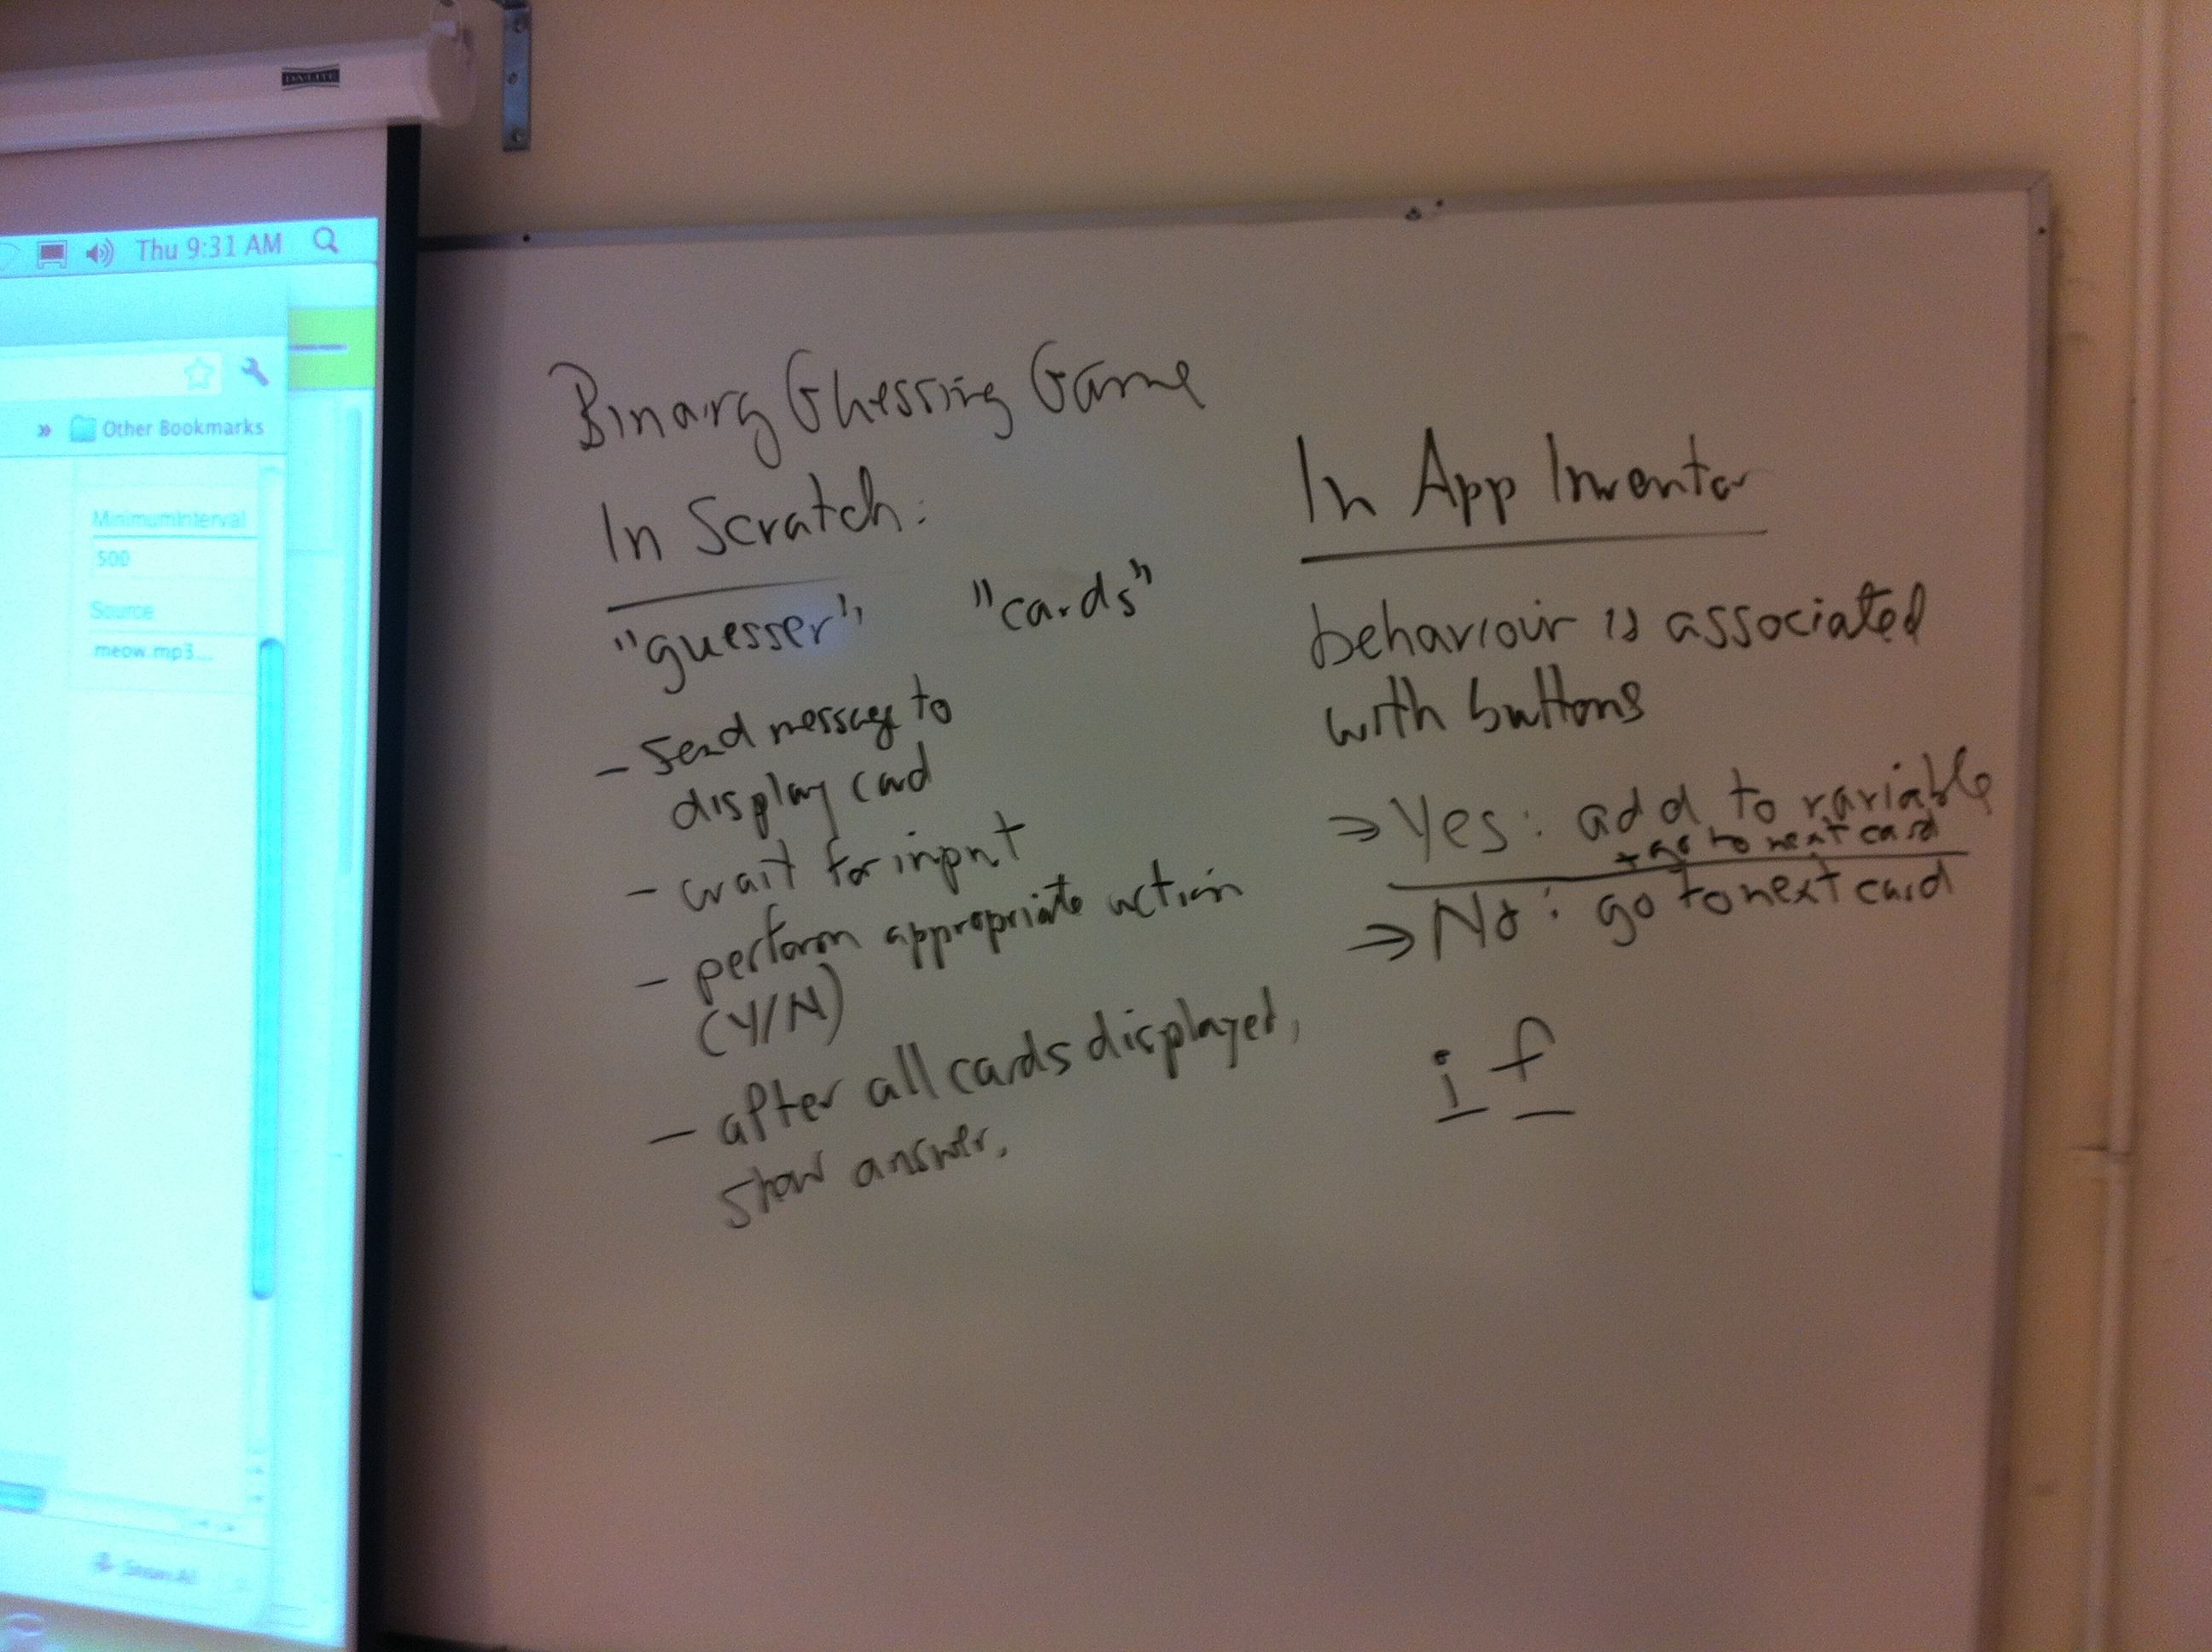 DA-LITE
Thu 9:31 AM
» Other Bookmarks
MinimumInterval
500
Source
meow.mp3...
Show All
Binary Guessing Game
In Scratch:
"guesser" "cards"
- send message to
display card
- wait for input
- perform appropriate action
(Y/N)
- after all cards displayed,
show answer.
In App Inventor
behaviour is associated
with buttons
⇒ Yes: add to variable
+ go to next card
⇒ No: go to next card
if